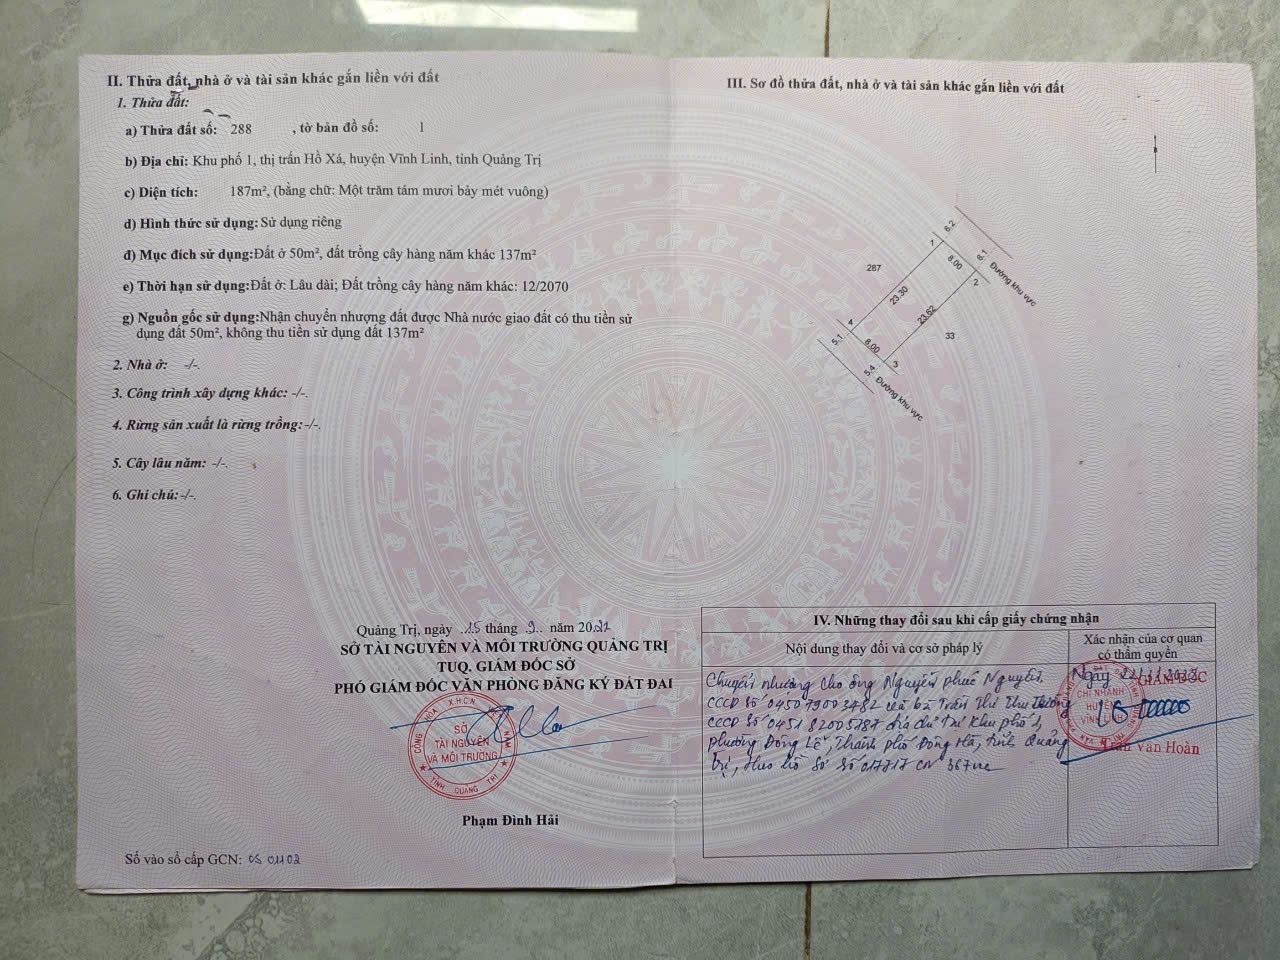 II. Thửa đất, nhà ở và tài sản khác gắn liền với đất
1. Thửa đất:
a) Thửa đất số: 288 , tờ bản đồ số: 1
b) Địa chỉ: Khu phố 1, thị trấn Hồ Xá, huyện Vĩnh Linh, tỉnh Quảng Trị
c) Diện tích: 187m², (bằng chữ: Một trăm tám mươi bảy mét vuông)
d) Hình thức sử dụng: Sử dụng riêng
đ) Mục đích sử dụng:Đất ở 50m², đất trồng cây hàng năm khác 137m²
e) Thời hạn sử dụng:Đất ở: Lâu dài; Đất trồng cây hàng năm khác: 12/2070
g) Nguồn gốc sử dụng:Nhận chuyển nhượng đất được Nhà nước giao đất có thu tiền sử
dụng đất 50m², không thu tiền sử dụng đất 137m²
2. Nhà ở: -/-.
3. Công trình xây dựng khác: -/-.
4. Rừng sản xuất là rừng trồng:-/-.
5. Cây lâu năm: -/-.
6. Ghi chú:-/-.
Quảng Trị, ngày 15 tháng 9 năm 2022
SỞ TÀI NGUYÊN VÀ MÔI TRƯỜNG QUẢNG TRỊ
TUQ. GIÁM ĐỐC SỞ
PHÓ GIÁM ĐỐC VĂN PHÒNG ĐĂNG KÝ ĐẤT ĐAI
CỘNG HÒA X.H.C.N VIỆT NAM
SỞ
TÀI NGUYÊN
VÀ MÔI TRƯỜNG
TỈNH QUẢNG TRỊ
Phạm Đình Hải
Số vào sổ cấp GCN: CS 01102
III. Sơ đồ thửa đất, nhà ở và tài sản khác gắn liền với đất
6.2
1
6.1
8.00
Đường khu vực
287
2
23.30
23.62
4
33
5.1
8.00
3
5.4
Đường khu vực
IV. Những thay đổi sau khi cấp giấy chứng nhận
Nội dung thay đổi và cơ sở pháp lý
Xác nhận của cơ quan
có thẩm quyền
Chuyển nhượng cho ông Nguyễn phúc Nguyên.
CCCD số 045079003482 và bà Trần Thị Thu Thương
CCCD số 045182005187 địa chỉ tại Khu phố 1,
phường Đông Lễ, Thành phố Đông Hà, tỉnh Quảng
Trị, theo hồ sơ số 017717 CN
Ngày
GIÁM ĐỐC
CHI NHÁNH
HUYỆN
VĨNH LINH
Trần Văn Hoàn